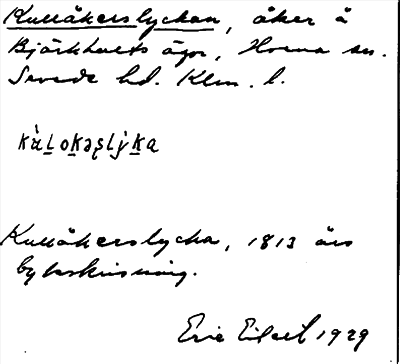 Kullåkerslyckan, åker å
Björkhults ägor, Horna sn.
Sevede hd. Klm. l.
kùḻoḵəʂlỳḵa
Kullåkerslycka, 1813 års
byteskisning.
Eric Edsell 1929